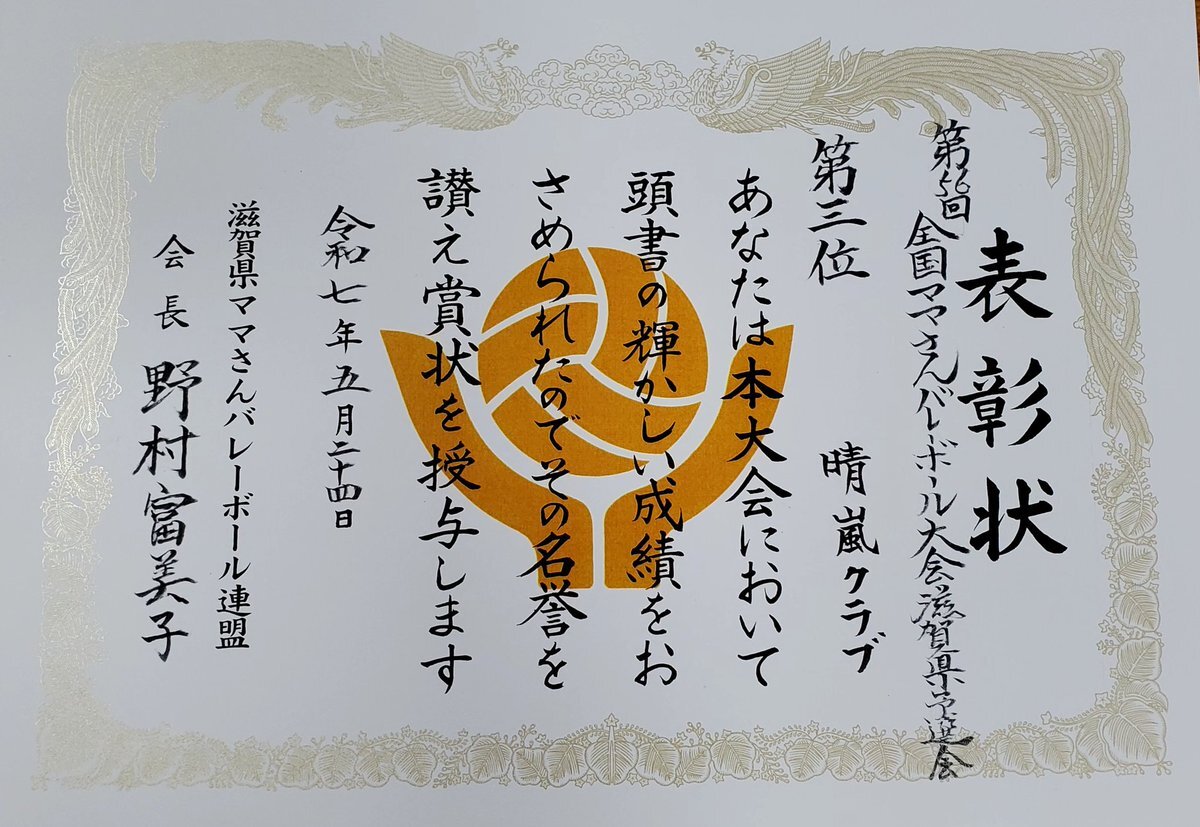 表彰状
第56回
全国ママさんバレーボール大会滋賀県予選会
第三位
晴嵐クラブ
あなたは本大会において
頭書の輝かしい成績をお
さめられたのでその名誉を
讃え賞状を授与します
令和七年五月二十四日
滋賀県ママさんバレーボール連盟
会長 野村富美子